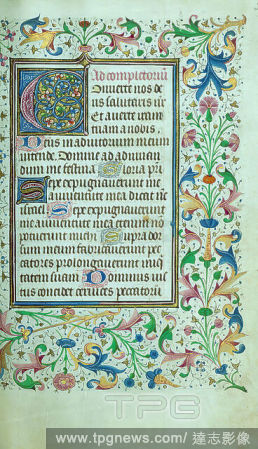 Ad completoriū
Conuerte nos de
us salutaris nr̄
Et auerte iram
tuam a nobis.
Deus in adiutorium meum
intende. Domine ad adiuuan
dum me festina. Gloria pri
Sepe expugnauerunt me
a iuuentute mea dicat nc̄
israel. Sepe expugnauerunt
me a iuuentute mea etenim nō
potuerunt michi. Supra dor
sum meum fabricauerunt pec
catores prolongauerunt iniq
tatem suam. Dominus ius
tus concidet ceruices peccatoru
TPG
www.tpgnews.com/ 達志影像